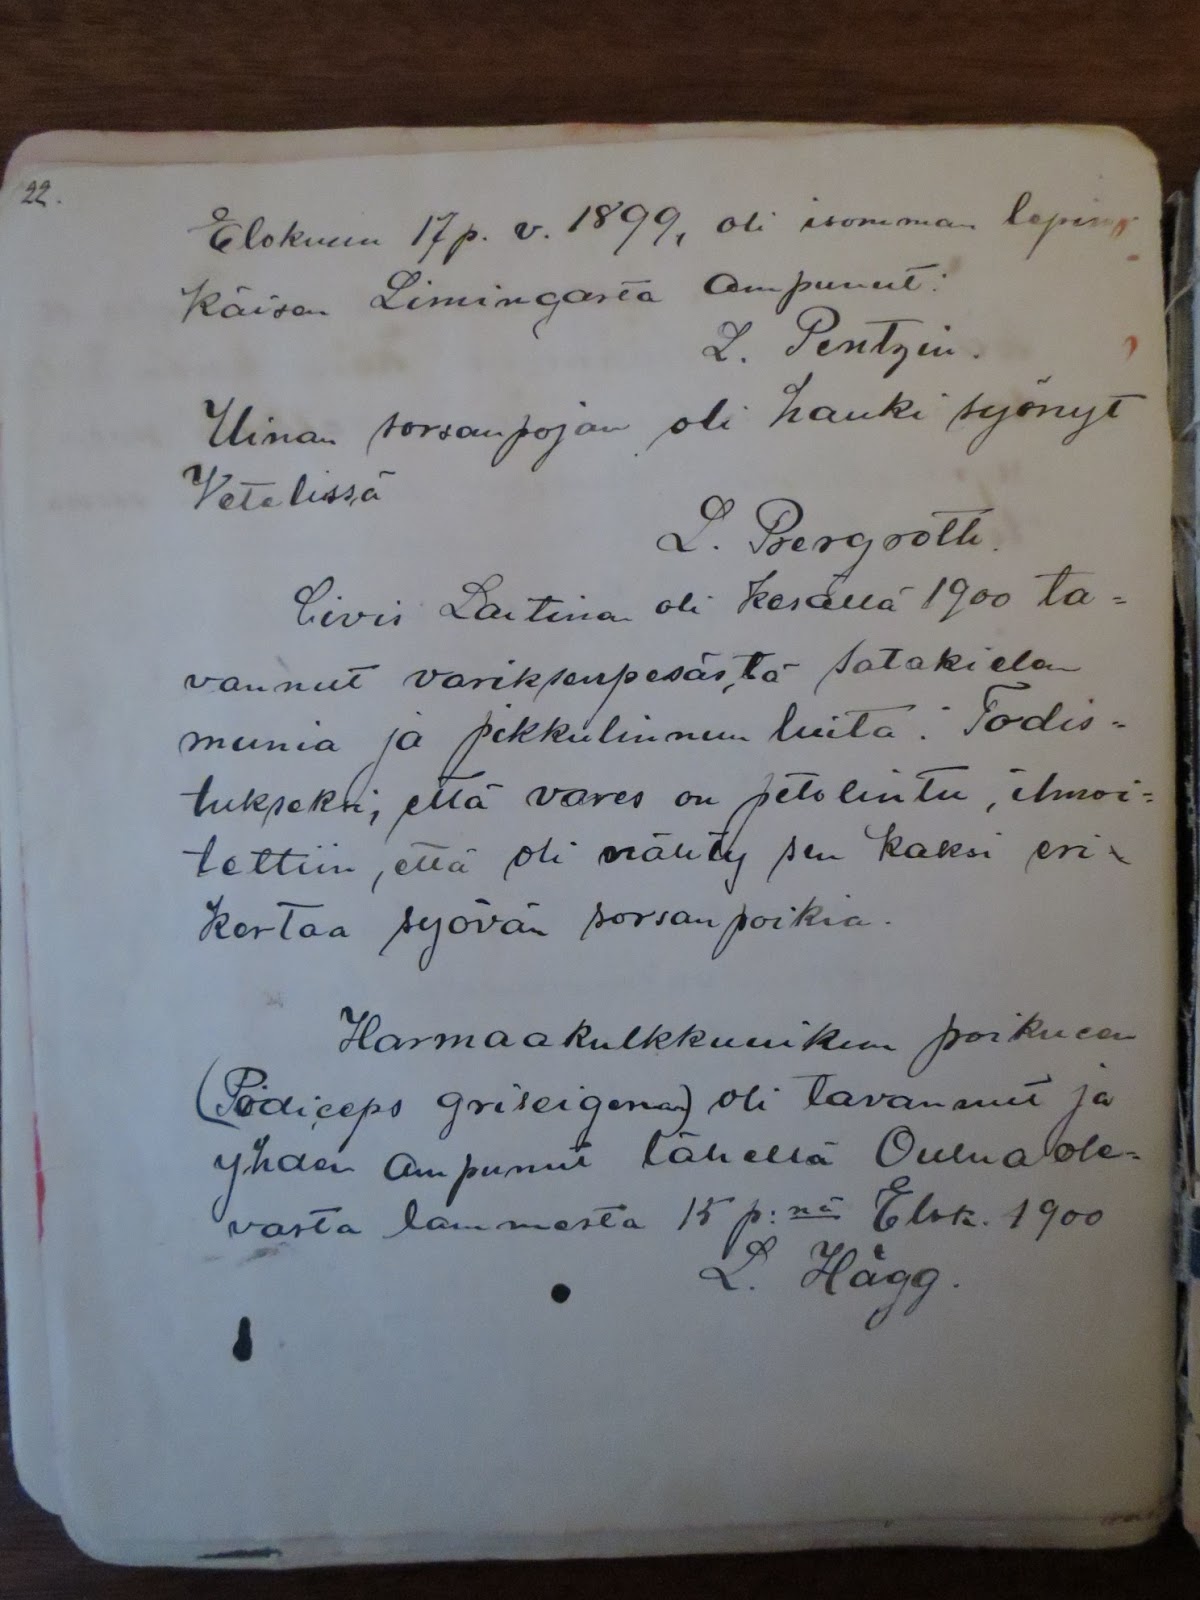 22.
Elokuun 17 p. v. 1899, oli isomman lepin
käisen Limingasta ampunut:
L. Pentzin.
Uinan sorsanpojan oli hauki syönyt
Vetelissä
L. Bergroth.
Civis Laitinen oli kesällä 1900 ta=
vannut variksenpesästä satakielen
munia ja pikkulinnun luita. Todis=
tukseksi, että vares on petolintu, ilmoi=
tettiin, että oli nähty sen kaksi eri
kertaa syövän sorsanpoikia.
Harmaakulkkuuikun poikueen
(Podiceps griseigena) oli tavannut ja
yhden ampunut lähellä Oulua ole=
vasta lammesta 15 p:nä Elok. 1900
L. Hägg.